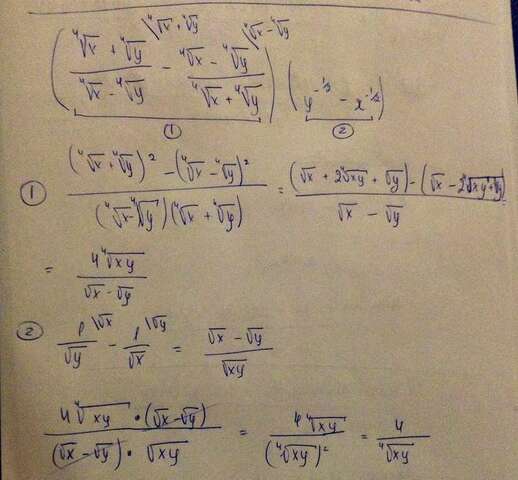 ( (⁴√x + ⁴√y)/(⁴√x - ⁴√y) \ ⁴√x + ⁴√y - (⁴√x - ⁴√y)/(⁴√x + ⁴√y) \ ⁴√x - ⁴√y ) ( y^(-1/2) - x^(-1/2) )
① ②
① ((⁴√x + ⁴√y)² - (⁴√x - ⁴√y)²)/((⁴√x - ⁴√y)(⁴√x + ⁴√y)) = ((√x + 2⁴√xy + √y) - (√x - 2⁴√xy + √y))/(√x - √y)
= 4⁴√xy/(√x - √y)
② 1/√y \ √x - 1/√x \ √y = (√x - √y)/√xy
(4⁴√xy · (√x - √y))/((√x - √y) · √xy) = 4⁴√xy/(⁴√xy)² = 4/⁴√xy